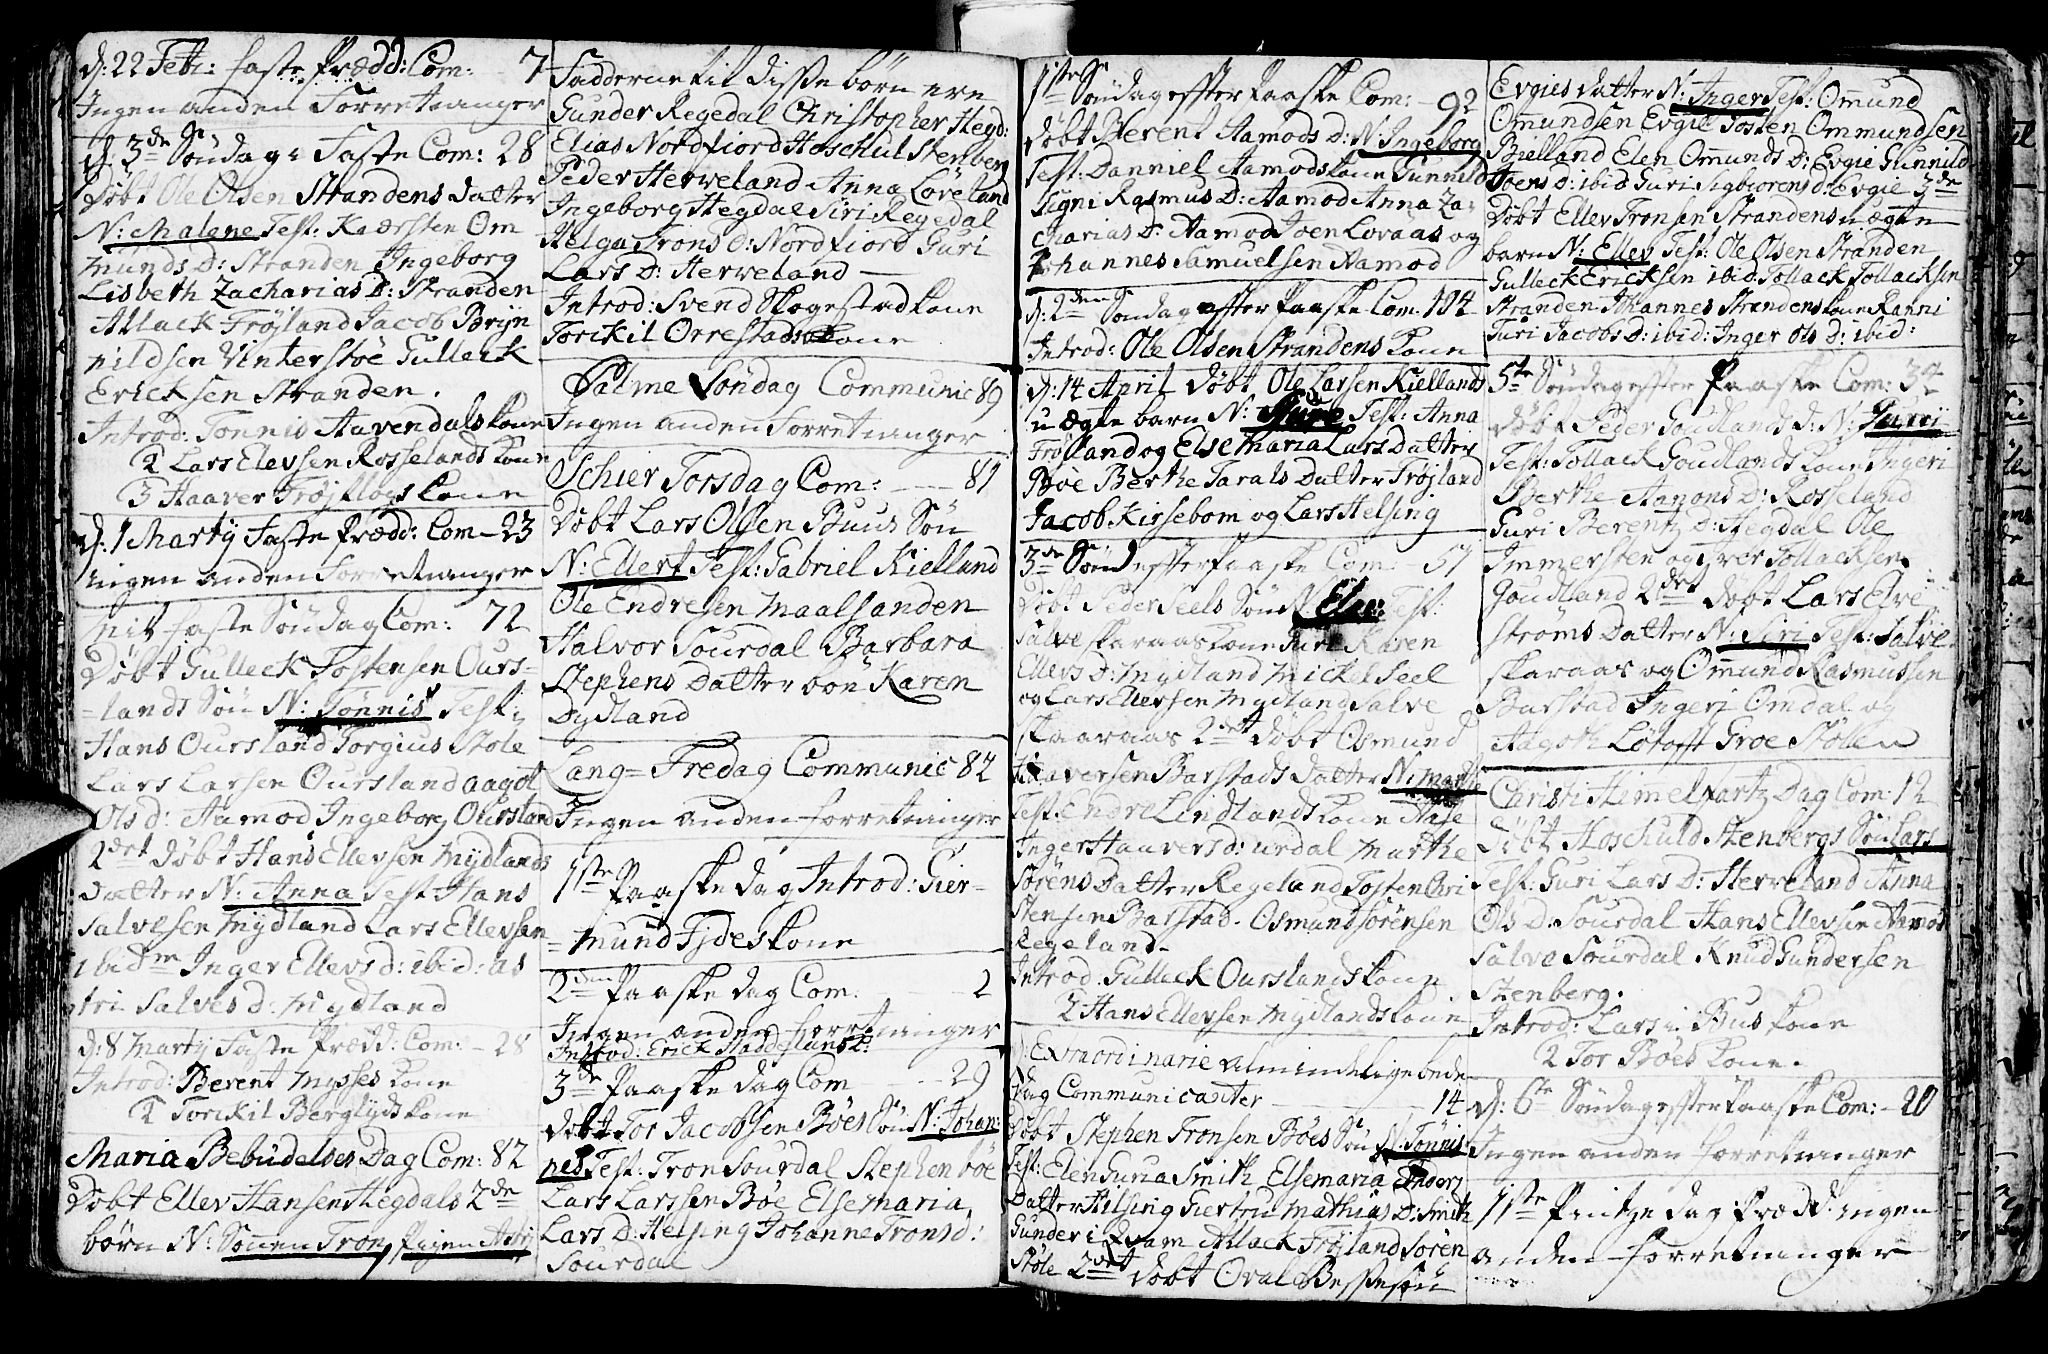 d: 22 Febr: faste Prædd: Com: 7
Ingen anden Forretninger
d: 3de Søndag i Faste Com: 28
Døbt Ole Olsen Strandens datter
N: Malene Test: Kaersten Om
munds D: Stranden Ingeborg
Lisbeth Zacharias D: Stranden
Atlack Frøjland Jacob Brijn
nildsen Vinterstøe Gulleck
Ericksen Stranden.
Introd: Tønnis Stavendals kone
2 Lars Elevsen Rosselands kone
3 Haaver Frøjflogs kone
d: 1 Martij Faste Prædd: Com 23
ingen anden Forretninger
Mit faste Søndag Com: 72
Døbt Gulleck Tostensen Ours-
=lands Søn N: Tønnis Test:
Hans Oursland Torgius Støle
Lars Larsen Oursland aagot
Ols d: Aamod Ingeborg Oursland
2det Døbt Hans Ellevsen Mydlands
Datter N: Anna Test Hans
Salvesen Mydland Lars Ellevsen
ibidm Inger Ellevs d: ibid: as
tri Salves d: Mydland
d: 8 Martij Faste Prædd: Com: 28
Introd: Berent Mysses kone
2 Torckil Berglyds kone
Maria Bebudelses Dag Com: 82
Døbt Ellev Hansen Hegdals 2de
børn N: Sønen Tron, Pigen Astri
Fadderne til disse børn ere
Gunder Regedal Christopher Hegd:
Elias Nordfiord Hoschul Stenberg
Peder Herveland Anna Løveland
Ingeborg Hegdal Siri Regedal
Helga Trons D: Nordfiord Guri
Lars D: Herveland
Introd: Svend Skogestad kone
Torckil Orrestads kone
Palme Søndag Communic 89
Ingen anden Forretninger
Schier Torsdag Com: 81
Døbt Lars Olsen Buus Søn
N: Ellert Test: Gabriel Kielland
Ole Endresen Maalsanden
Halvor Sourdal Barbara
Stephens Datter böe Karen
Dydland
Lang= Fredag Communic 82
Ingen anden forretninger
1ste Paaske dag Introd: Gier-
=mund Fjdes kone
2den Paaske dag Com. 2
Ingen anden forretninger
Introd: Erick Haddelands k:
3de Paaske dag Com 29
Døbt Tor Jacobsen Bøes Søn N: Johan:
nes Test: Tron Sourdal Stephen böe
Lars Larssen Bøe Elsemaria
Lars D: Helsing Johanne Trons d:
Sourdal
1ste Søndag effter Paaske Com: 92
Døbt Berent Aamods D: N: Ingeborg
Test: Danniel Aamods kone Gunnild
Signi Rasmus D: Aamod Anna Za-
charias D: Aamod Joen Lovaas og
Johannes Samuelsen Aamod
d: 2den Søndag effter Paaske Com 104
Introd: Ole Olsen Strandens kone
d: 14 April døbt Ole Larsen Kiellands
u ægte barn N: Test: Anna
Frøjland og Else Maria Lars Datter
Bøe Berthe Tarals Datter Frøjland
Jacob Kirsebom og Lars Helsing
3de Sønd effter Paaske Com 51
Døbt Peder Seels Søn N Elen: Test:
Salve Skaraas kone Siri Karen
Ellevs D: Mydland Mickel Seel
og Lars Ellevsen Mydland Salve
Skaaraas 2det døbt Osmund
Haaversen Barstads datter N: Marthe
Test: Endre Lindlands kone Aase
Inger Haavers d: Urdal Marthe
Sørens Datter Regeland Tosten Chri
stensen Barstad. Osmund Sørensen
Regeland.
Introd Gulleck Ourslands kone
2 Hans Ellevsen Mydlands kone
d: Extraordinarie almindelige bede
dag Communicanter 14
Døbt Stephen Tronsen Bøes Søn N: Tønnis
Test: Elen Guria Smith Elsemaria Thoers
Datter Hilsing Giertru Mathias D: Smith
Gunder i Qvam Atlack Frøjland Søren
Støle 2det Døbt Oval Bessesön
Evgies datter N: Inger Test: Ommund
Ommundsen Evgie Tosten Ommundsen
Bielland Elen Ommunds D: Evgie Gunnild
Joens D: ibid Guri Sigbiorens D: Evgie 3de
Døbt Ellev Tronsen Strandens u ægte
barn N: Ellev Test: Ole Olsen Stranden
Gulleck Ericksen ibid. Tollack Tollacksen
Stranden Johannes Strandens kone Ranni
Turi Jacobs D: ibid: Inger Ols D: ibid:
5te Søndag effter Paaske Com: 32
Døbt Peder Goudlands d: N: Guri
Test: Tollack Goudlands kone Ingeri
Berthe Aanons D: Rosseland
Guri Berentz D: Hegdal Ole
Immersten og Iver Tollacksen
Goudland 2det døbt Lars Elve
strøms Datter N: Siri Test: Salve
Skaraas og Ommund Rasmussen
Barstad Ingeri Omdal og
Aagoth Løtofft Groe Stølen
Christi Himelfartz Dag Com: 12
Døbt Hoschuld Stenbergs Søn Lars
Test: Guri Lars D: Herveland Anna
Ols D: Sourdal Hans Ellevsen Aamod
Salve Sourdal Knud Gundersen
Stenberg.
Introd: Lars i Bus kone
2 Tor Bøes kone.
d: 6te Søndag effter Paaske Com: 20
Ingen anden forretninger
1ste Pintze dag Prædd: ingen
anden forretninger